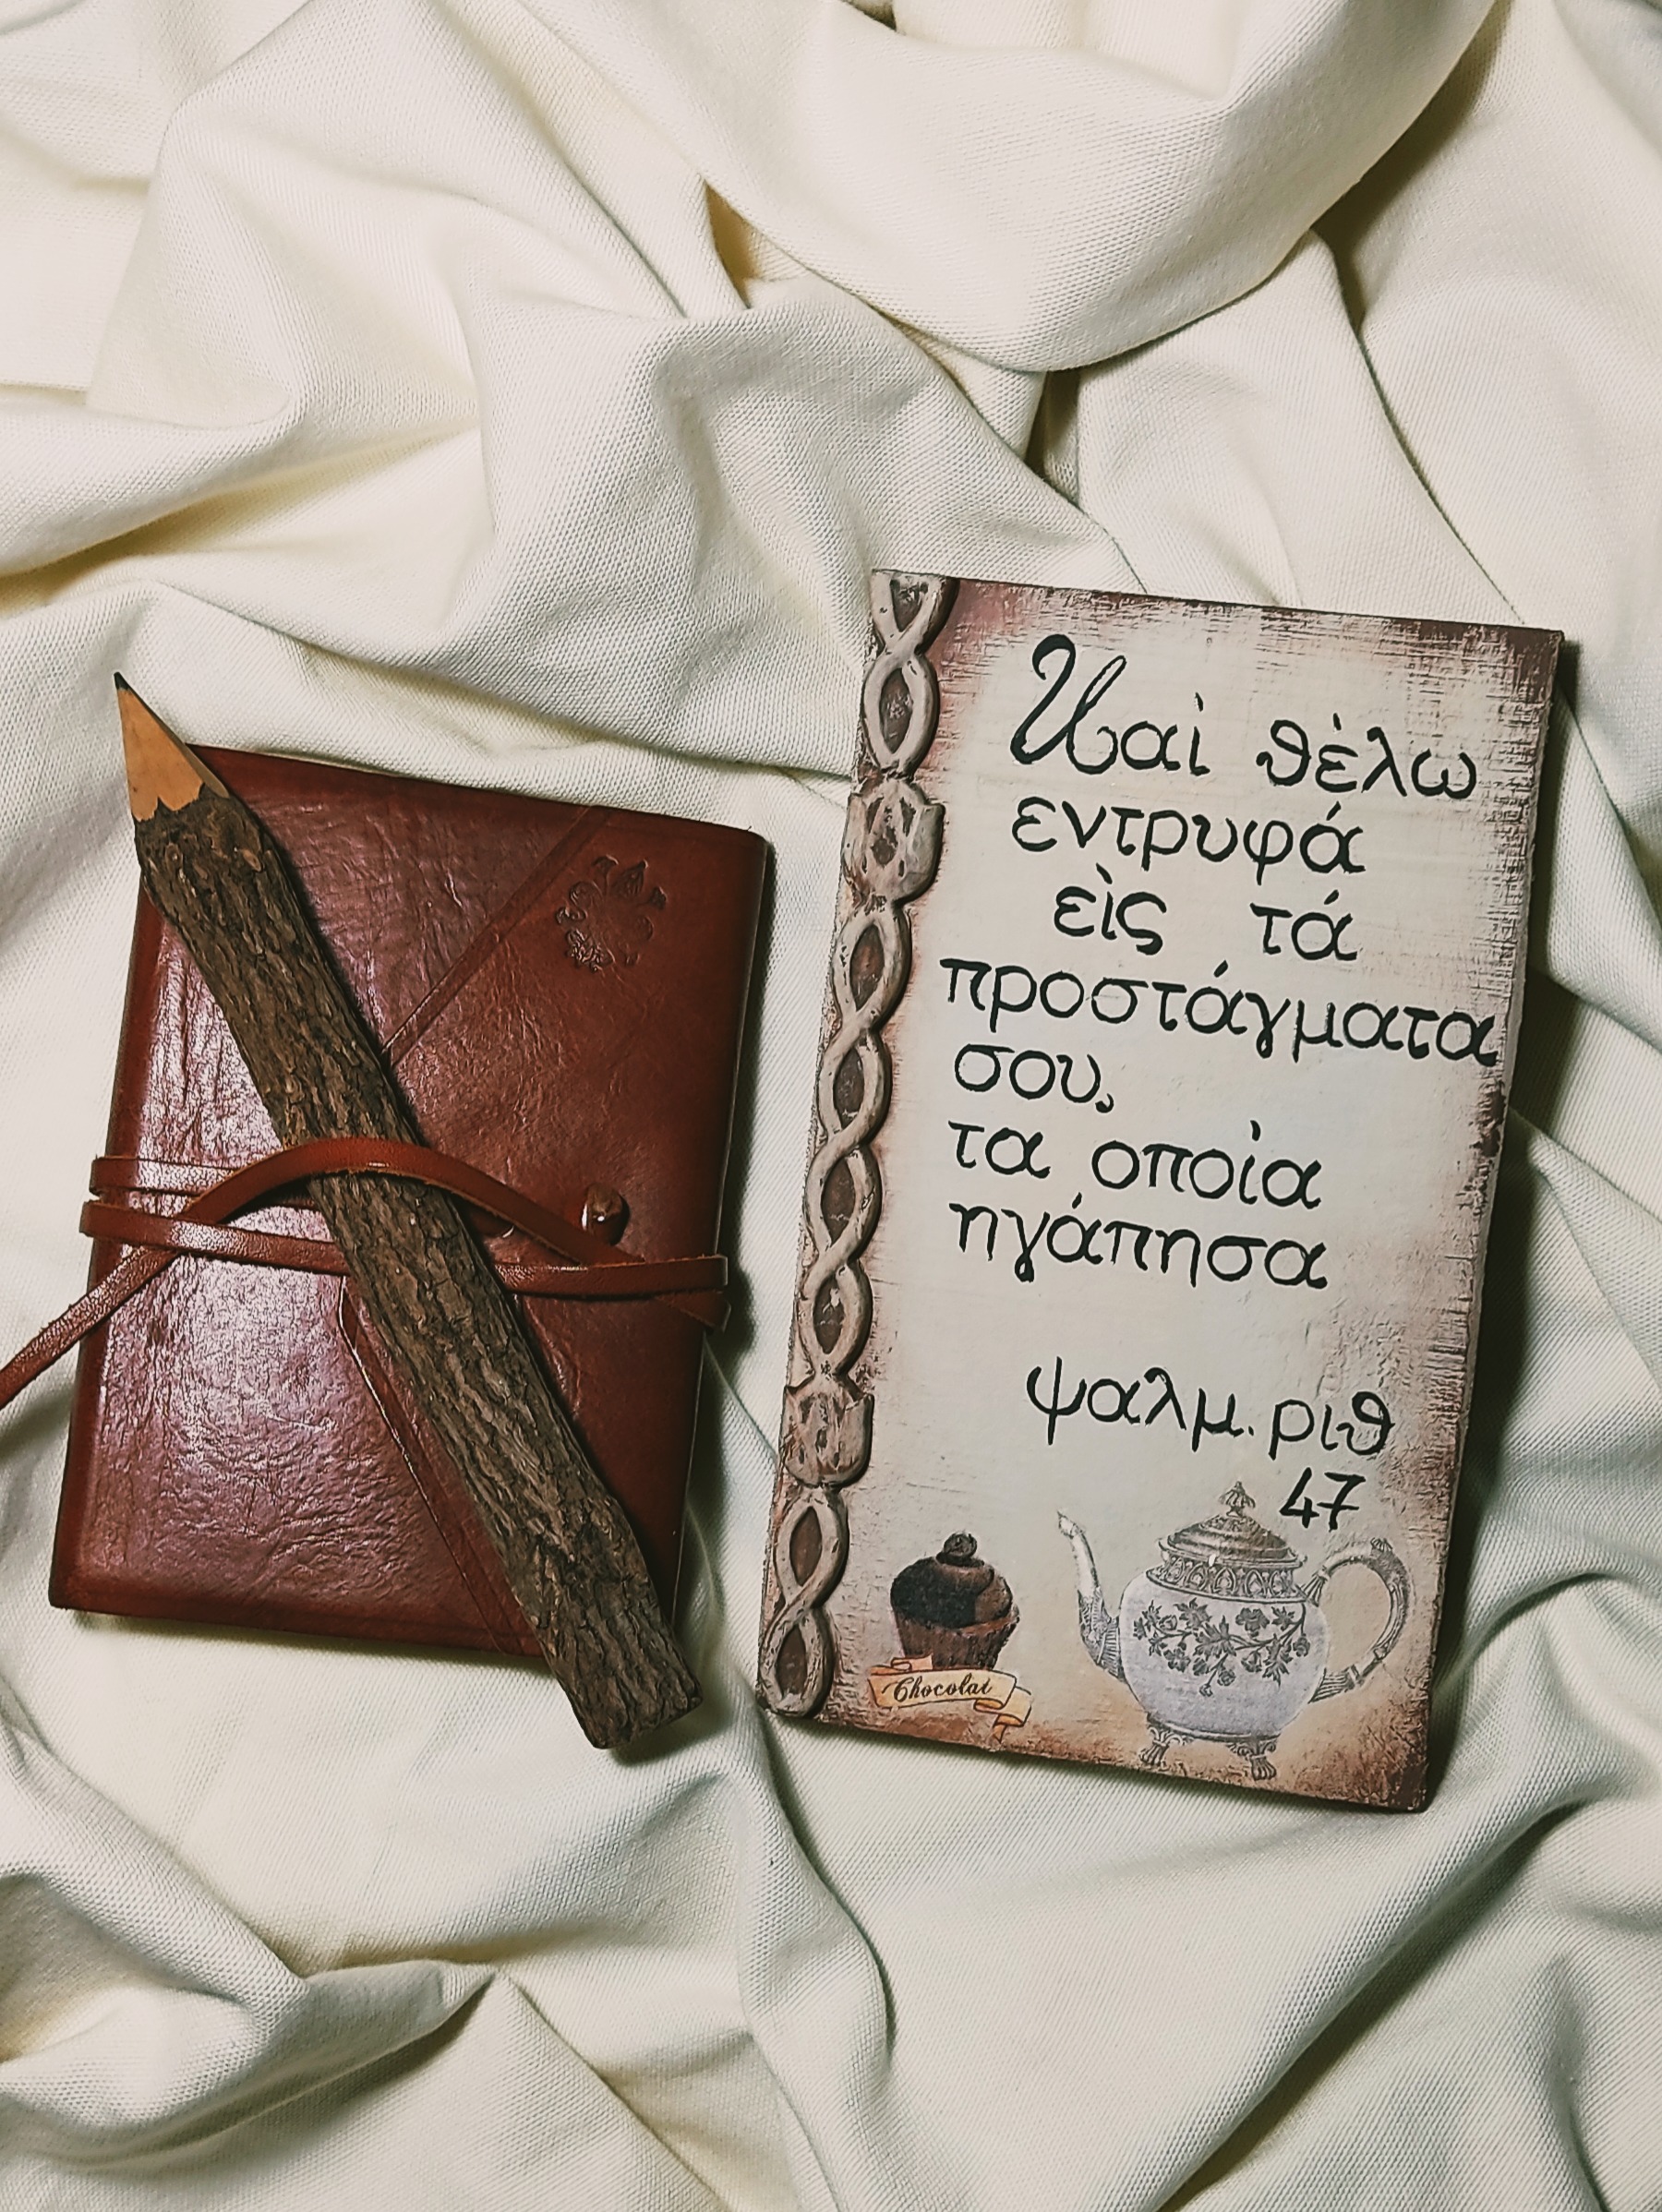 Καὶ θὲλω
εντρυφά
εὶς τά
προστάγματα
σου,
τα οποὶα
ηγάπησα
ψαλμ. ριθ
47
Chocolat